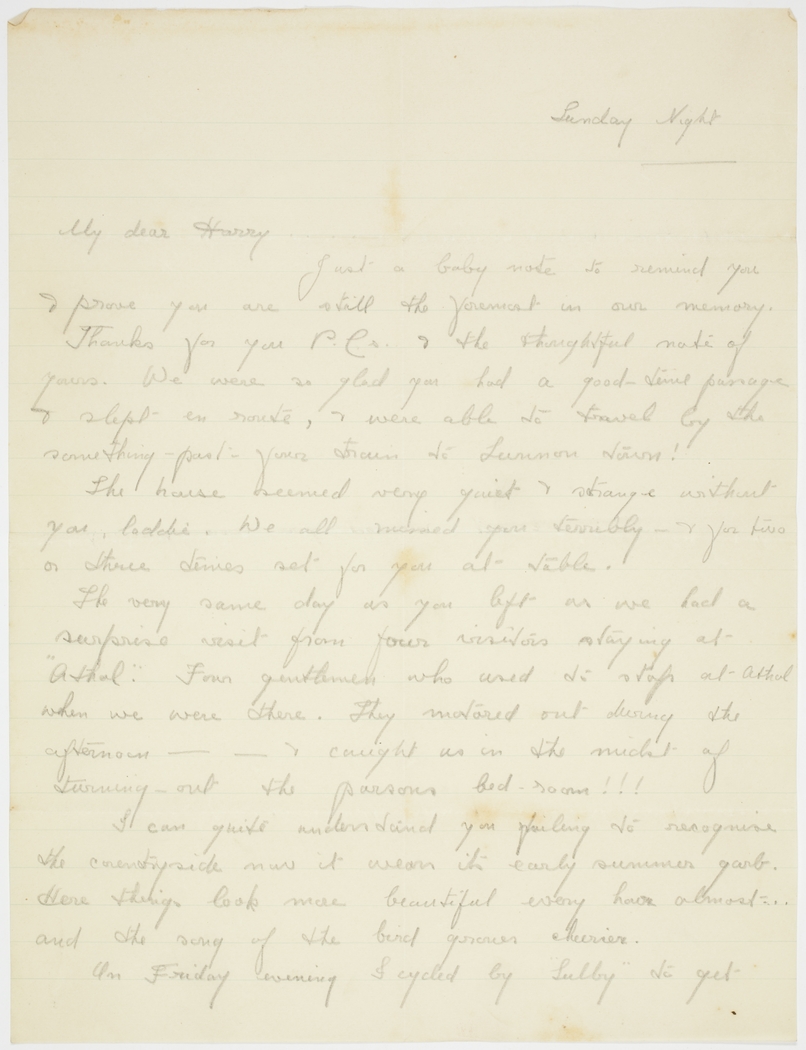 Sunday Night
My dear Harry
Just a baby note to remind you
& prove you are still the foremost in our memory.
Thanks for you P.Cs. & the thoughtful note of
yours. We were so glad you had a good-time passage
& slept en route, & were able to travel by the
something-past-four train to Lunnon town!
The house seemed very quiet & strange without
you, laddie. We all missed you terribly - & for two
or three times set for you at table.
The very same day as you left us we had a
surprise visit from four visitors staying at
"Athol". Four gentlemen who used to stop at Athol
when we were there. They motored out during the
afternoon — — & caught us in the midst of
turning-out the parsons bed-room!!!
I can quite understand you failing to recognise
the countryside now it wears its early summer garb.
Here things look more beautiful every hour almost...
and the song of the bird grows cheerier.
On Friday evening I cycled by to get